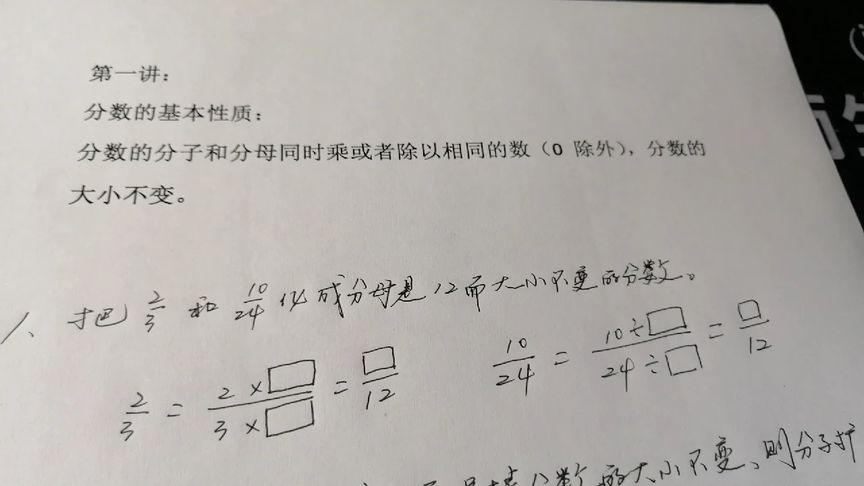 第一讲：
分数的基本性质：
分数的分子和分母同时乘或者除以相同的数（0 除外），分数的
大小不变。
1、把 2/3 和 10/24 化成分母是12而大小不变的分数。
2/3 = 2×□/3×□ = □/12    10/24 = 10÷□/24÷□ = □/12
数的大小不变、则分子扩